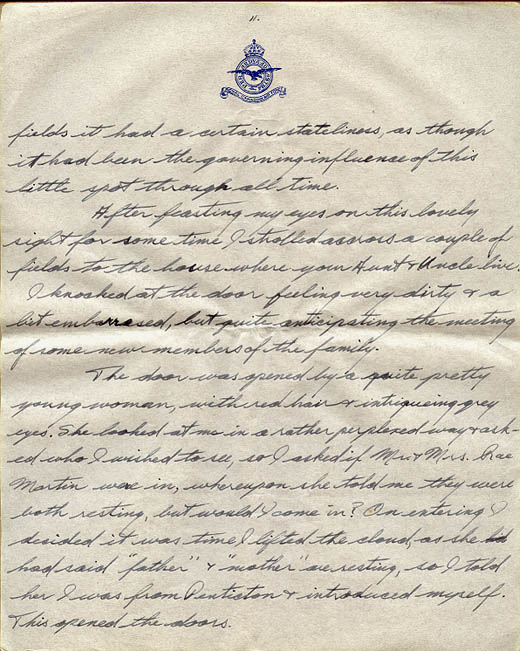 11.
fields it had a certain stateliness, as though
it had been the governing influence of this
little spot through all time.
After feasting my eyes on this lovely
sight for some time I strolled ascross a couple of
fields to the house where your Aunt & Uncle live.
I knocked at the door feeling very dirty & a
bit embarrased, but quite anticipating the meeting
of some new members of the family.
The door was opened by a quite pretty
young woman, with red hair & intrigueing grey
eyes. She looked at me in a rather perplexed way & ask-
ed who I wished to see, so I asked if Mr. & Mrs. Rae
Martin were in, whereupon she told me they were
both resting, but would I come in? On entering I
decided it was time I lifted the cloud, as she
had said "father" & "mother" are resting, so I told
her I was from Penticton & introduced myself.
This opened the doors.